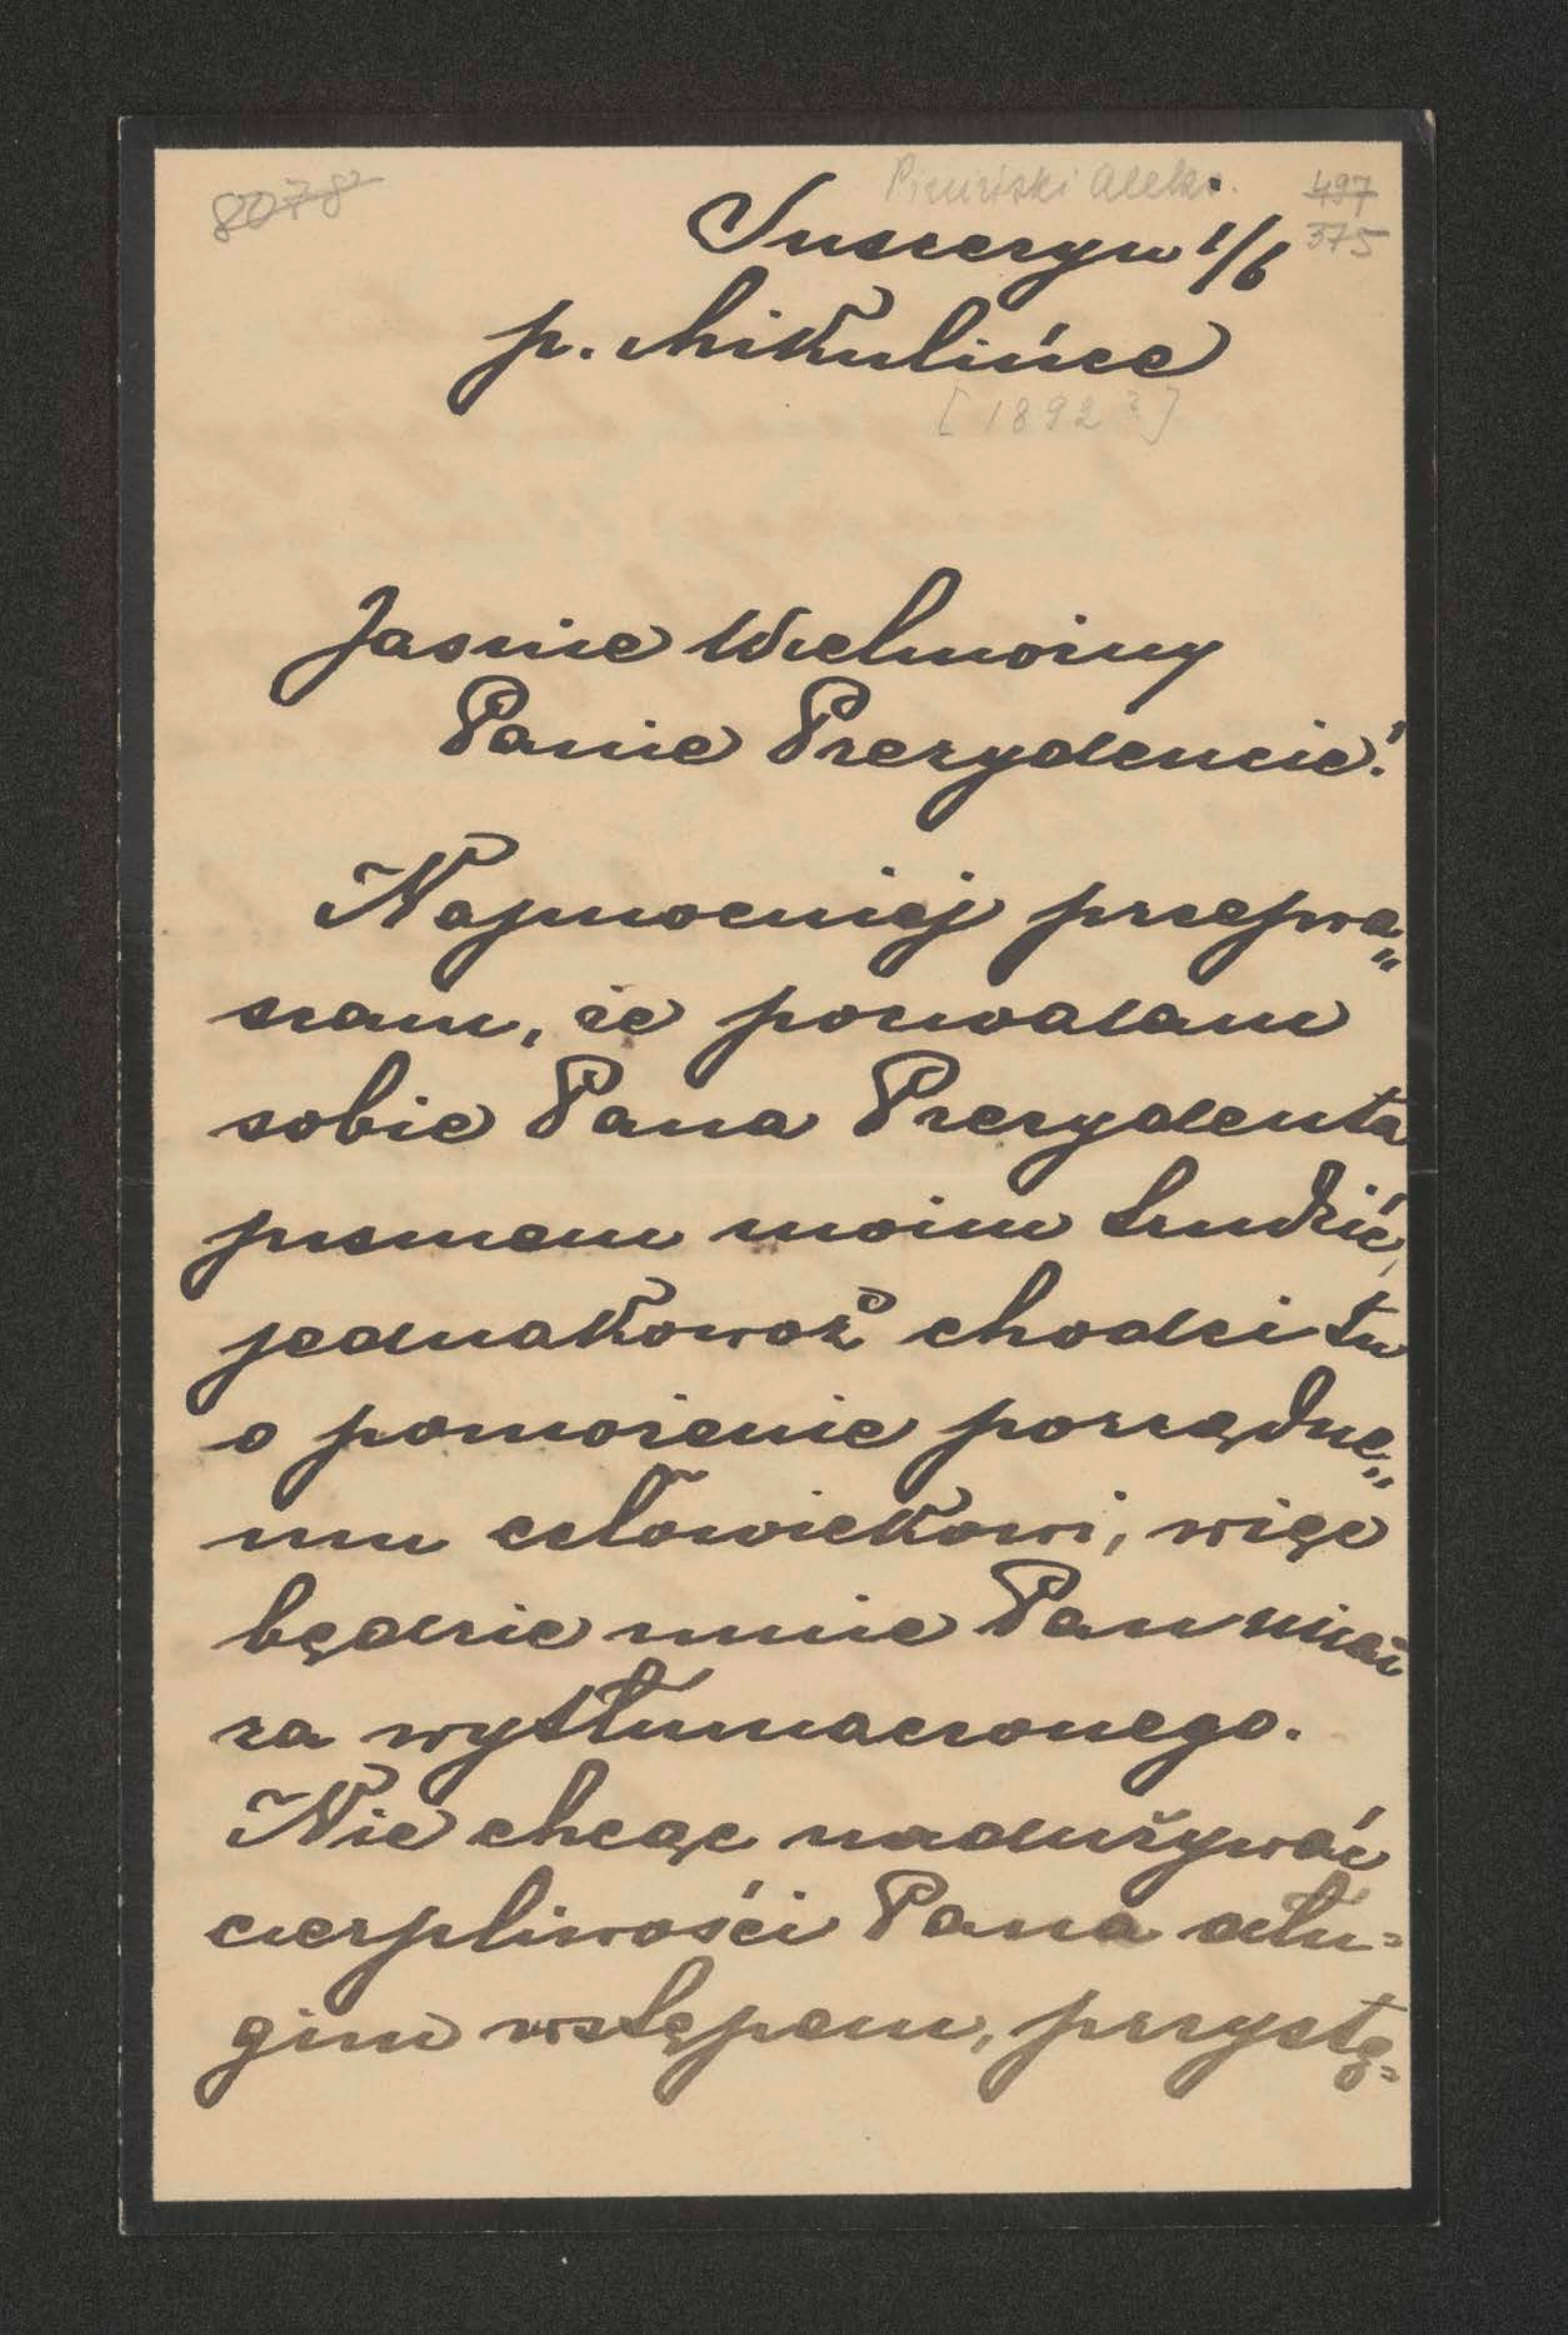 8078
Piniński Aleks.
497
375
Suszczyn 1/6
p. Mikulińce
[1892?]
Jasnie Wielmożny
Panie Prezydencie!
Najmocniej przepra„
szam, że pozwalam
sobie Pana Prezydenta
pismem moim trudzić,
jednakowoż chodzi tu
o pomożenie porządne„
mu człowiekowi, więc
będzie mnie Pan miał
za wytłumaczonego.
Nie chcąc nadużywać
cierpliwości Pana dłu=
gim wstępem, przystę=